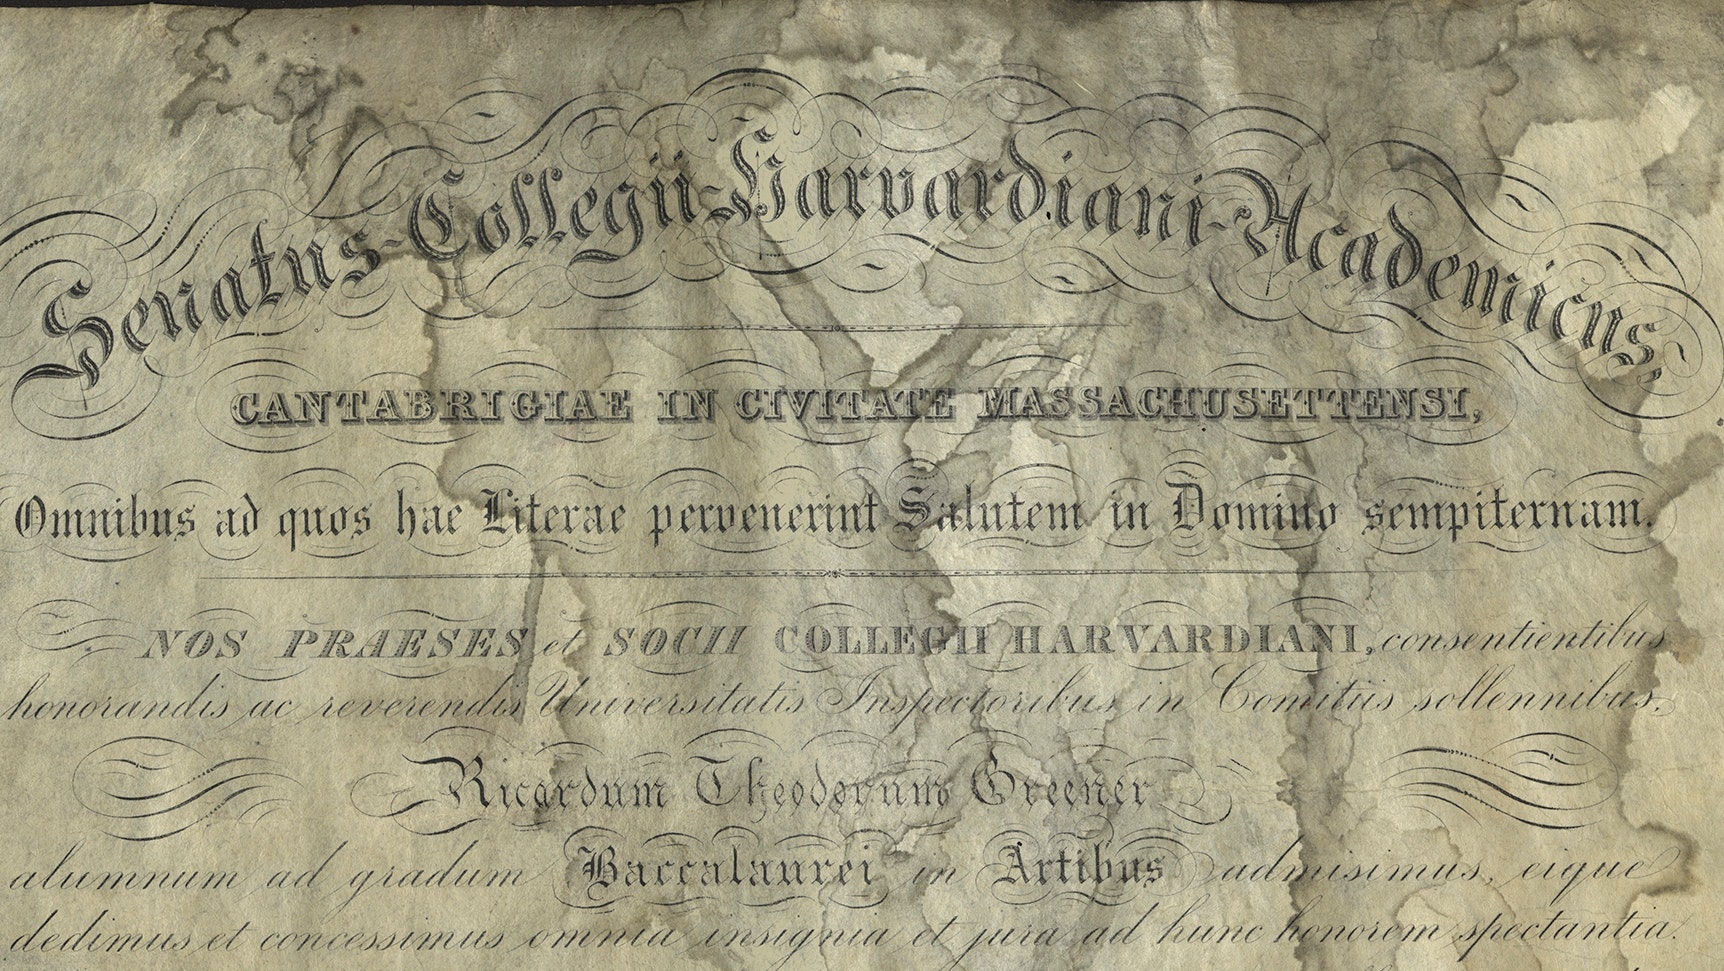 Senatus-Collegii-Harvardiani-Academicus,
CANTABRIGIAE IN CIVITATE MASSACHUSETTENSI,
Omnibus ad quos hae Literae pervenerint Salutem in Domino sempiternam.
NOS PRAESES et SOCII COLLEGII HARVARDIANI, consentientibus
honorandis ac reverendis Universitatis Inspectoribus in Comitiis sollennibus,
Ricardum Theodorum Greener
alumnum ad gradum Baccalaurei in Artibus admisimus, eique
dedimus et concessimus omnia insignia et jura ad hunc honorem spectantia.